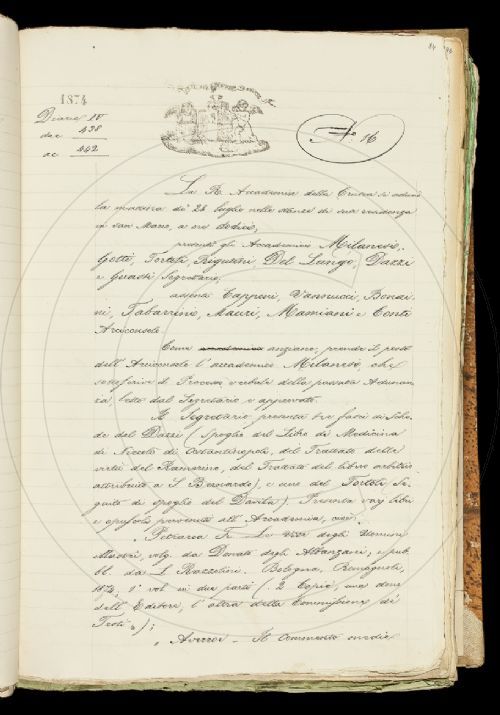 14
1874
Diario IV
da c. 438
a c. 442
N.º 16
La R. Accademia della Crusca si adunò
la mattina di 24 luglio nelle stanze di sua residenza
in san Marco, a ore dodici,
presenti gli Accademici Milanesi,
Gotti, Tortoli, Rigutini, Del Lungo, Dazzi
e Guasti Segretario;
assenti Capponi, Vannucci, Bonai-
ni, Tabarrini, Mauri, Mamiani e Conti
Arciconsolo.
Come anziano, prende il posto
dell'Arciconsolo l'accademico Milanesi, che
sottoscrive il Processo verbale della passata Adunan-
za, letto dal Segretario e approvato.
Il Segretario presenta tre fasci di Sche-
de del Dazzi (Spoglio del Libro di Medicina
di Niccolò di Costantinopoli, del Trattato della
virtù del Ramerino, del Trattato del libero arbitrio
attribuito a S. Bernardo), e uno del Tortoli (Se-
guito di spoglio del Davila). Presenta vari libri
e opuscoli pervenuti all'Accademia, cioè:
„ Petrarca Fr. Le Vite degli Uomini
illustri, volg. da Donato degli Albanzani, e pub-
bl. da L. Razzolini. Bologna, Romagnoli,
1874, 1° vol. in due parti (2 Copie, una dono
dell'Editore, l'altra della Commissione pe'
Testi ");
„ Averroe – Il Commento medio